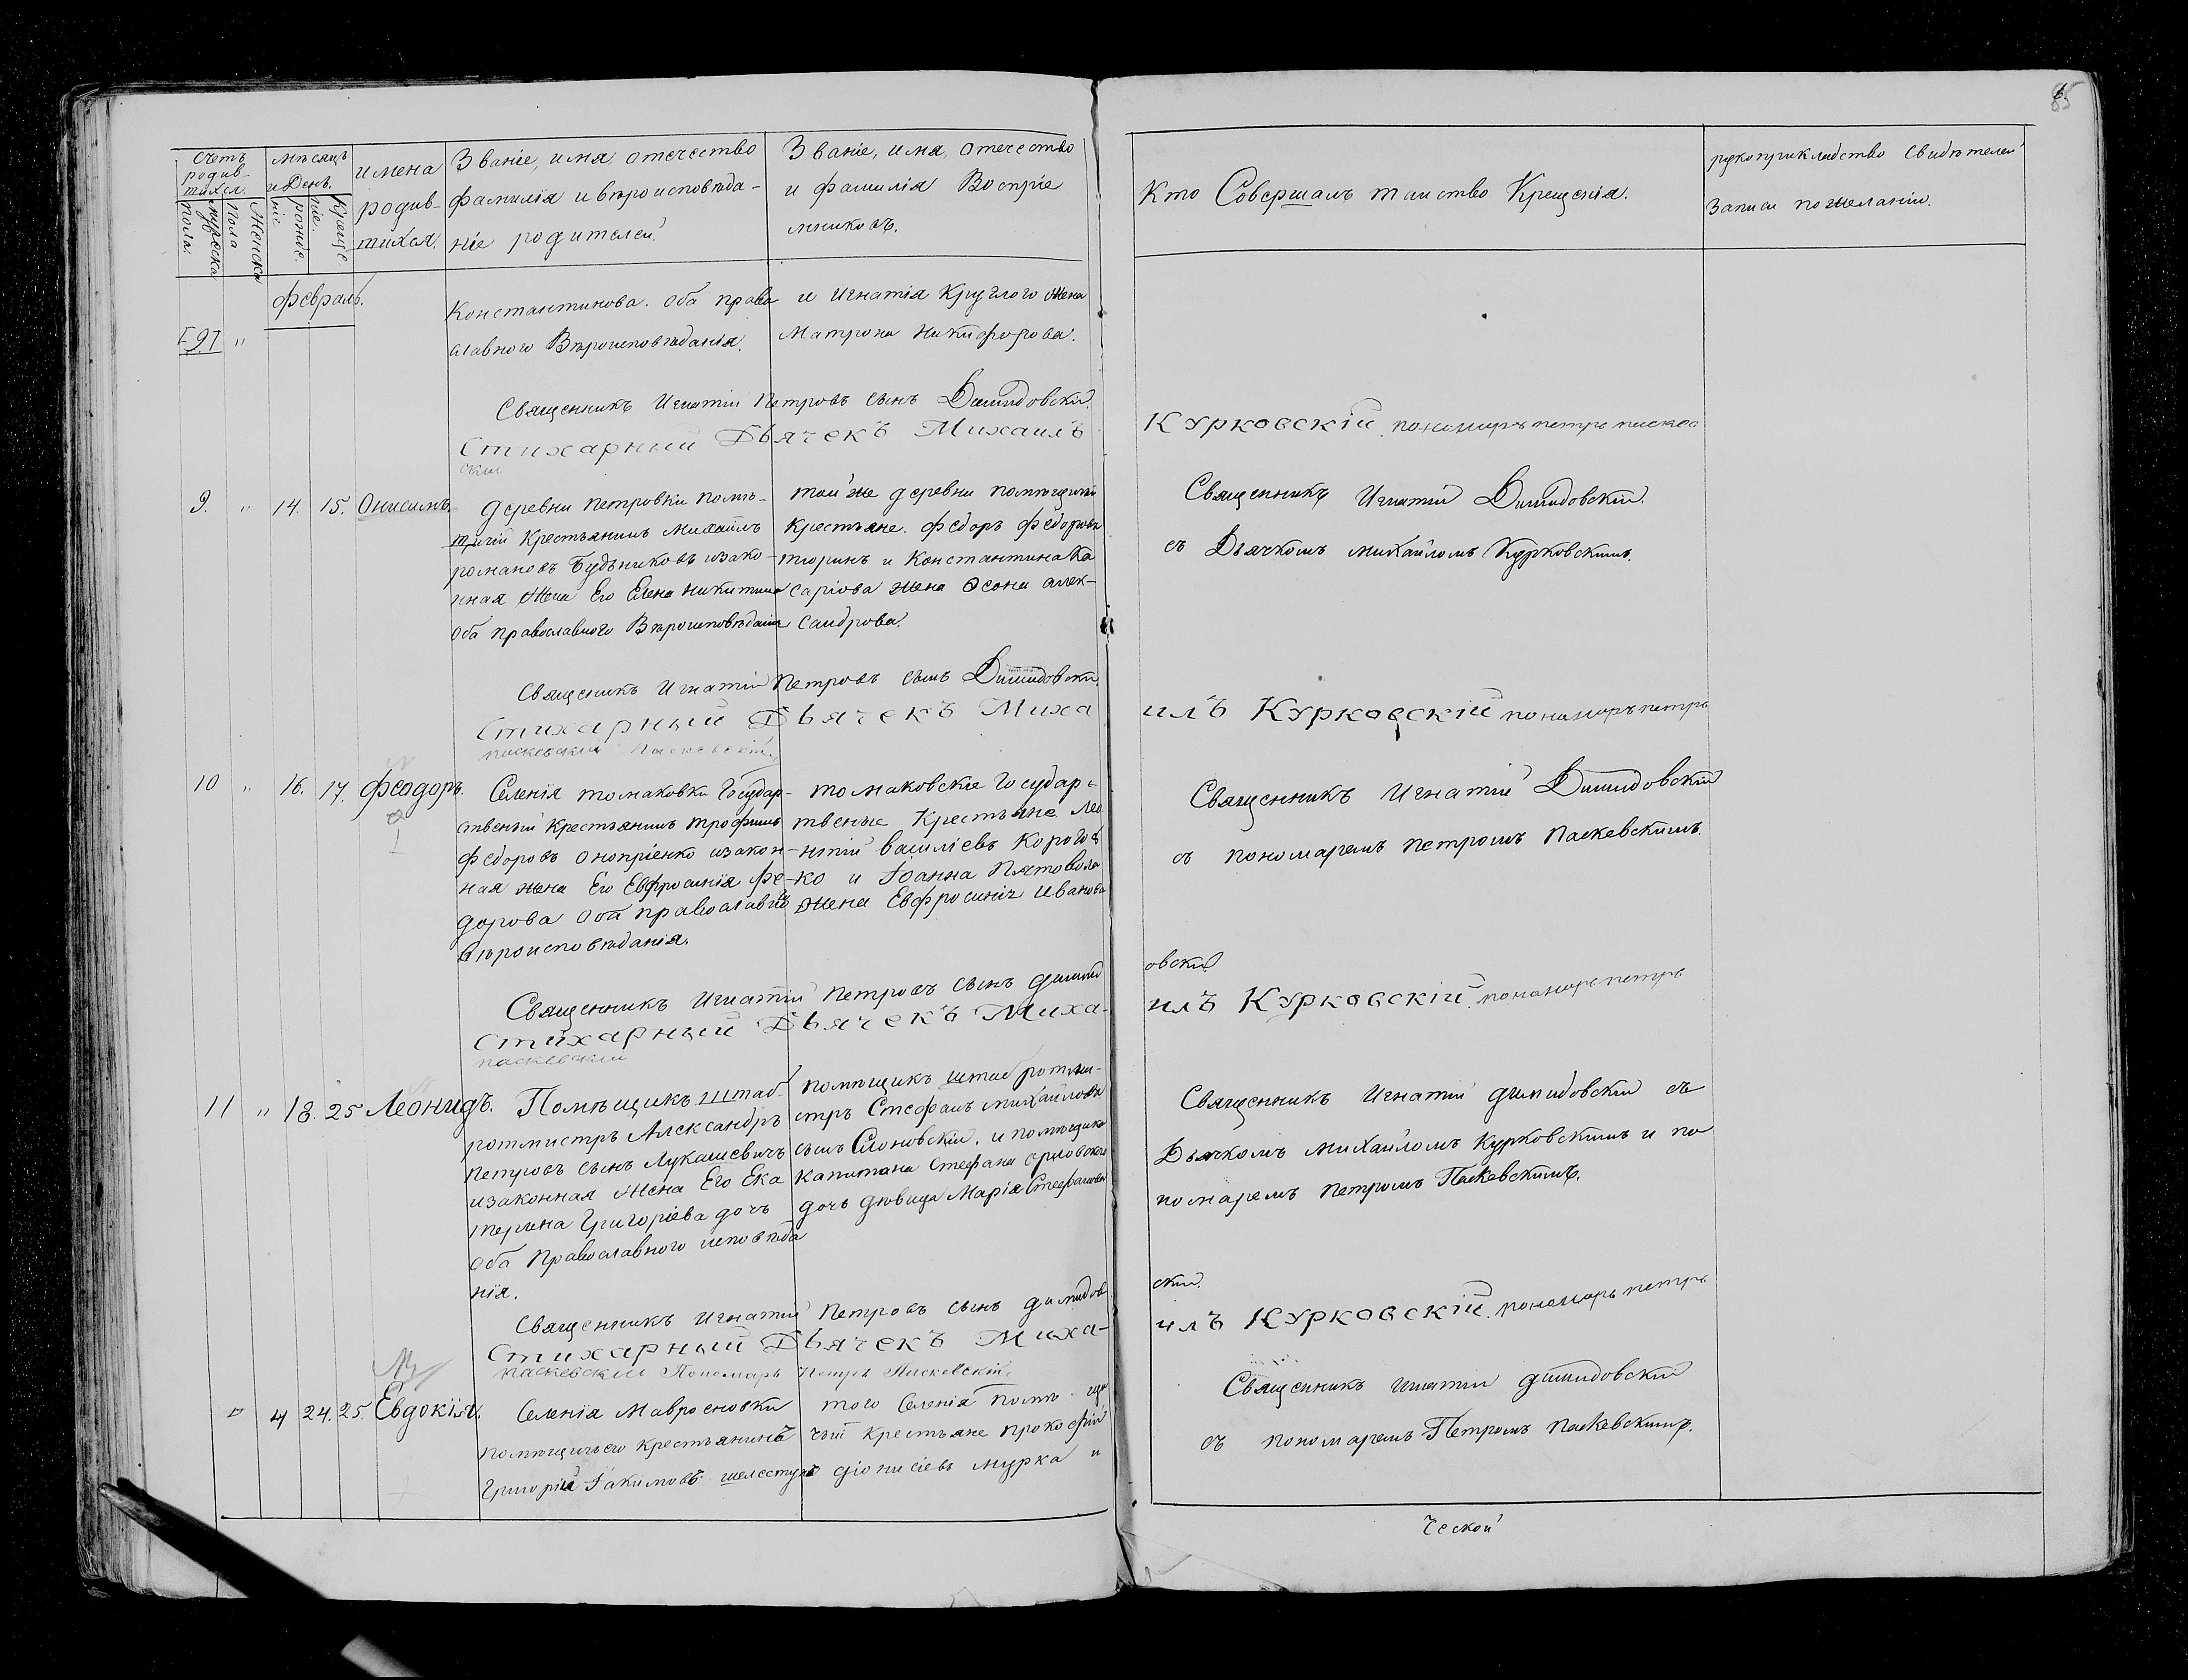 85
Счетъ родив-
шихся.
Мужеска пола.
Женска пола
Мѣсяцъ
и День.
рожде.
ніе.
Креще.
ніе.
имена
родив-
шихся.
Званіе, имя, отечество
фамилія и вѣроисповѣда-
ніе родителей.
Званіе, имя, отечество
и фамилія Воспріе
мниковъ.
Кто Совершалъ таинство Крещенія.
рукоприкладство Свидѣтелей
Записи по желанію.
Февраль.
Константинова. Оба право
славного Вѣроисповѣданія.
и Игнатія Круглого жена
Матрона Никифорова.
Священникъ Игнатій Петровъ сынъ Димидовскій.
Стихарный Дьячекъ Михаилъ
Курковскій пономаръ петръ паскев
скій
9. " 14. 15. Онисимъ.
деревни Петровки помѣ-
щичій Крестьянинъ Михаилъ
романовъ Будьниковъ изако-
нная жена Его Елена Никитина
Оба православного Вѣроисповѣданія
той же деревни помѣщичьи
Крестьяне. Федоръ Федоровъ
тюринъ и Константина Ка
саріова жена Ѳсона алек-
сандрова.
Священникъ Игнатій Димидовскій.
съ Дьячкомъ михайломъ Курковскимъ.
Священникъ Игнатій Петровъ сынъ Димидовскій.
Стихарный Дьячекъ Миха
илъ Курковскій пономаръ петръ
паскевскій Паскевскій.
10 " 16. 17. Феодоръ.
Селенія томаковки Государ-
ственый Крестьянинъ трофимъ
Федоровъ оноприенко изакон-
ная жена Его Евфросинія Фе-
дорова Оба православнго
вѣроисповѣданія.
томаковскіе Государ-
твеные Крестьяне Лео
нтій василіевъ Корот
ко и Іоанна Пятовола
жена Евфросинія Иванова
Священникъ Игнатій Димидовскій
съ пономаремъ Петромъ Паскевскимъ.
Священникъ Игнатій Петровъ сынъ димид
овскій
Стихарный Дьячекъ Миха-
илъ Курковскій. пономаръ петръ
паскевскій
11 " 18. 25 Леонидъ.
Помѣщикъ штаб
ротмистръ Александръ
Петровъ сынъ Лукашевичъ
изаконная жена Его Ека
терина Григоріева дочъ
Оба Православного исповѣда
нія.
помѣщикъ штабротми-
стръ Стефанъ михайловъ
сынъ Слоновскій, и помѣщика
Капитана Стефана орловского
дочъ дѣвица Марія Стефанова
Священникъ Игнатій димидовскій съ
Дьячкомъ михайломъ Курковскимъ и по
номаремъ Петромъ Паскевскимъ.
Священникъ Игнатій Петровъ сынъ димидов
скій.
Стихарный Дьячекъ Миха-
илъ Курковскій. пономарь петръ
паскевскій Пономарь Петръ Паскевскій.
" 4 24. 25. Евдокія.
Селенія Мавроеновки
помѣщичьего крестьянинъ
Григорій Іакимовъ шелестунъ
того Селенія помѣ-щи
чьи Крестьяне прокофій
діонисіевъ мурка и
Священникъ Игнатій димидовскій
съ пономаремъ Петромъ Паскевскимъ.
ческой